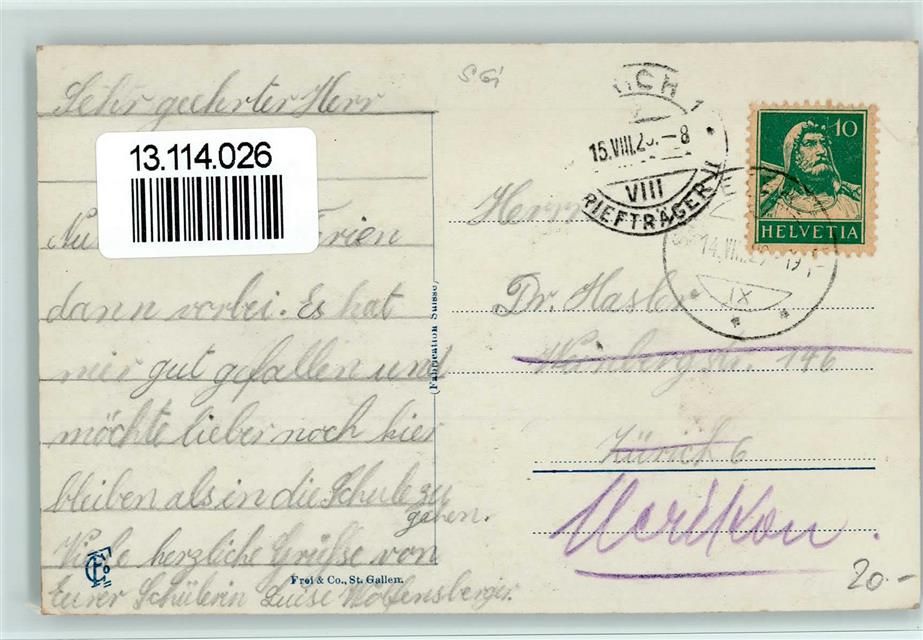 Sehr geehrter Herr
13.114.026
Ferien
dann vorbei. Es hat
mir gut gefallen und
möchte lieber noch hier
bleiben als in die Schule zu
gehen.
Viele herzliche Grüsse von
Eurer Schülerin Luise Wolfensberger.
(Fabrication Suisse)
Frei & Co., St. Gallen.
15.VIII.2 .-8
VIII
RIEFTRÄGER
10
HELVETIA
14.VIII.2
IX
Herrn
Dr. Hasler
146
Zürich 6
Oerlikon.
20.-